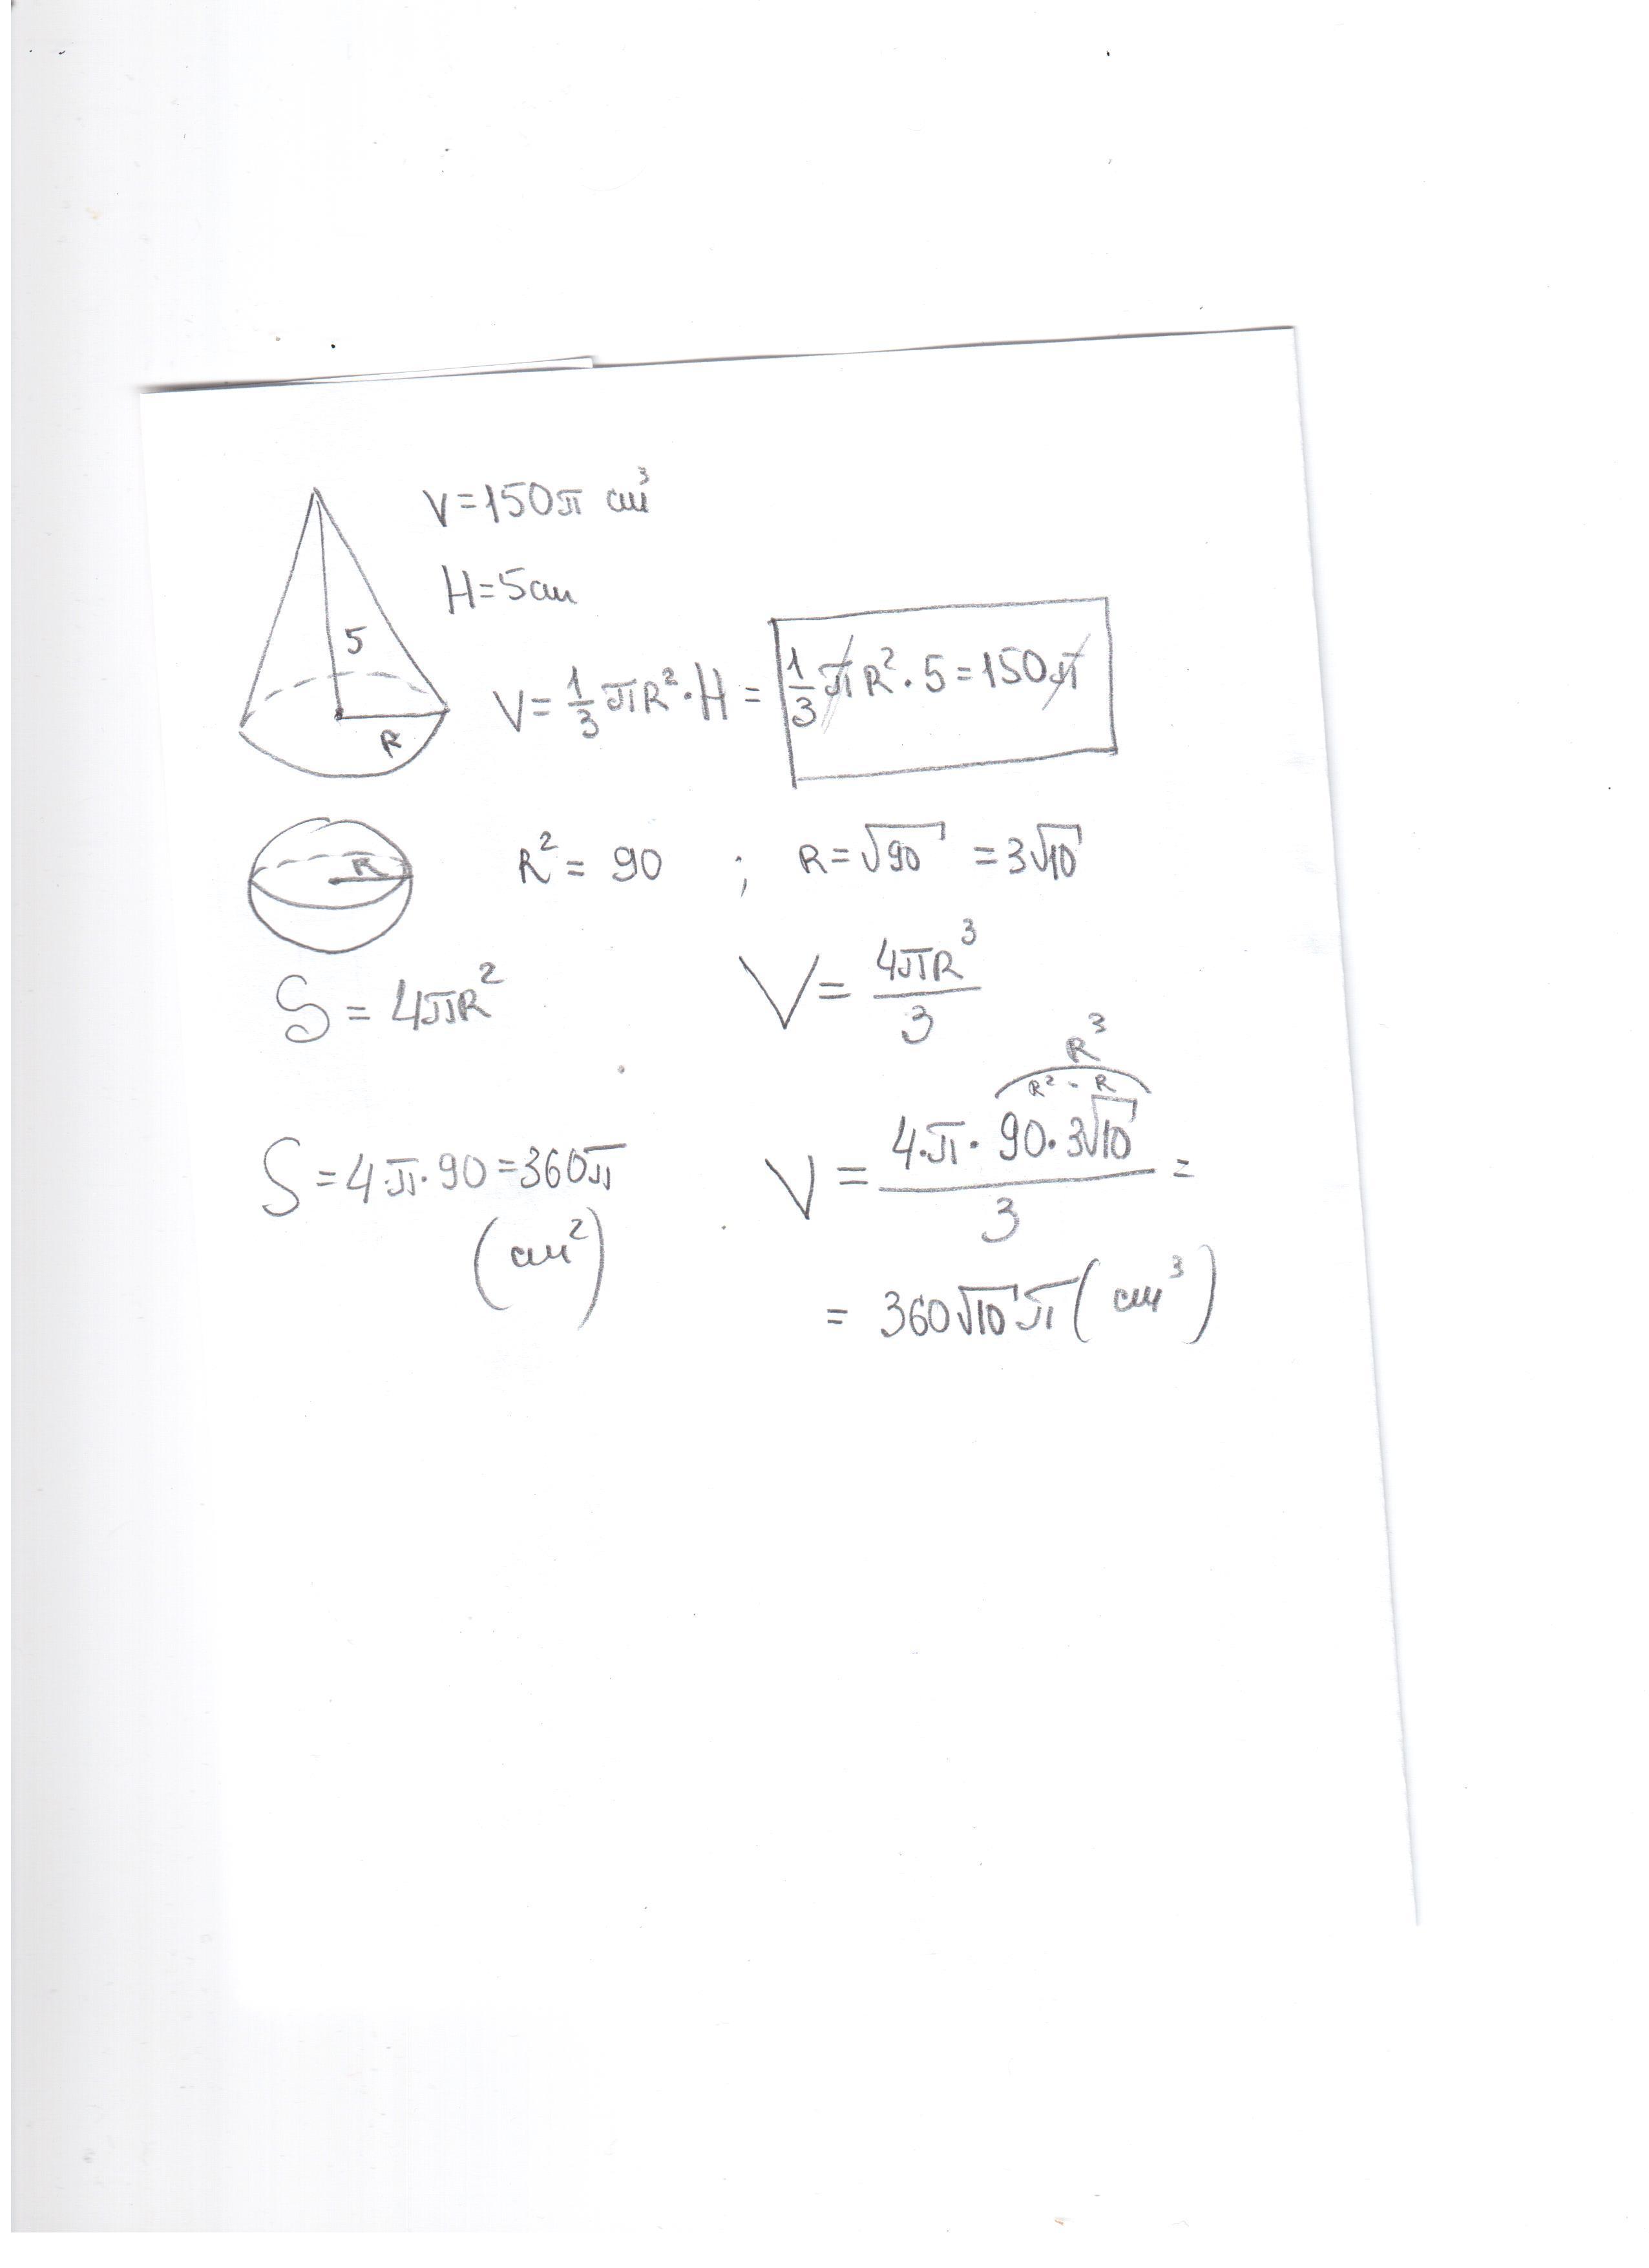 V=150π см³
H=5см
5
V=1/3 πR²·H = 1/3 πR²·5=150π
R
R
R²= 90 ; R=√90 =3√10
S = 4πR²
V= 4πR³/3
R³
R² · R
S=4·π·90=360π
(см²)
V = 4·π·90·3√10/3 =
= 360√10 π (см³)